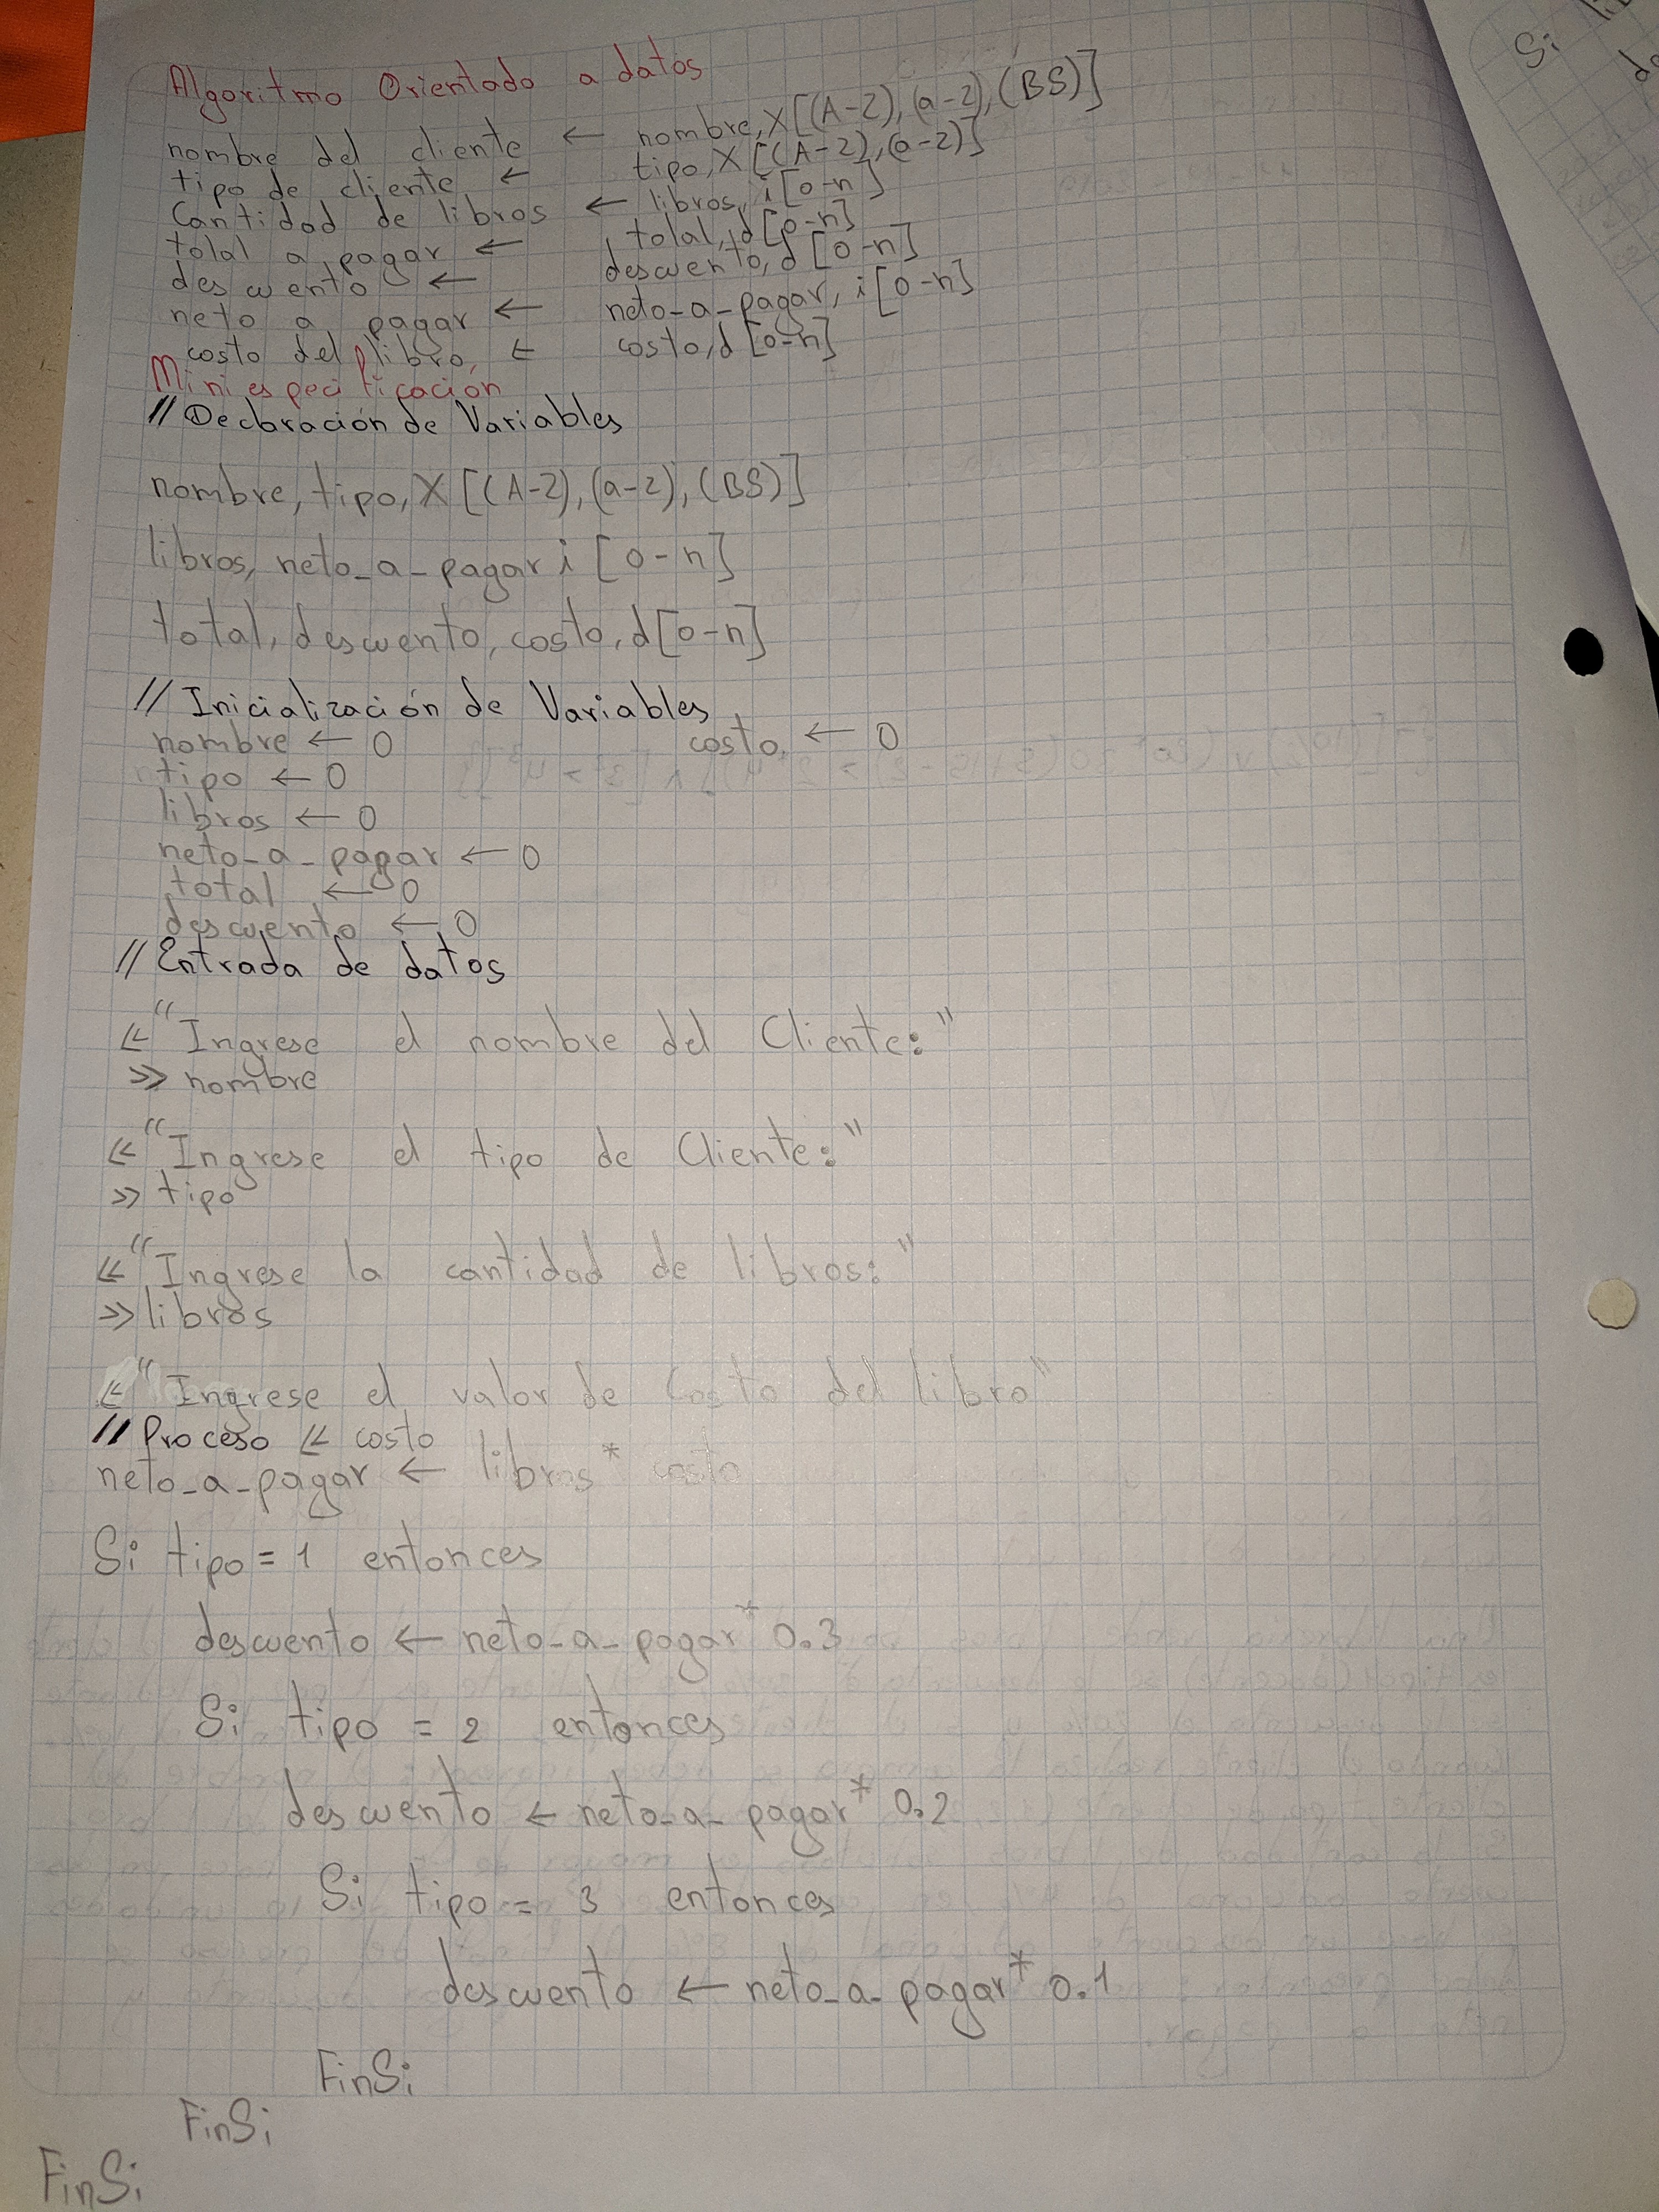 Algoritmo Orientado a datos
nombre del cliente ← nombre, X[(A-Z), (a-z), (BS)]
tipo de cliente ← tipo, X [(A-Z), (a-z)]
Cantidad de libros ← libros, i [0-n]
total a pagar ← total, d [0-n]
descuento ← descuento, d [0-n]
neto a pagar ← neto_a_pagar, i [0-n]
costo del libro, ← costo, d [0-n]
Miniespecificación
// Declaración de Variables
nombre, tipo, X [(A-Z), (a-z), (BS)]
libros, neto_a_pagar i [0-n]
total, descuento, costo, d [0-n]
// Inicialización de Variables
nombre ← 0 costo ← 0
tipo ← 0
libros ← 0
neto_a_pagar ← 0
total ← 0
descuento ← 0
// Entrada de datos
<< "Ingrese el nombre del Cliente:"
>> nombre
<< "Ingrese el tipo de Cliente:"
>> tipo
<< "Ingrese la cantidad de libros:"
>> libros
<< "Ingrese el valor de costo del libro"
// Proceso << costo
neto_a_pagar ← libros * costo
Si tipo = 1 entonces
descuento ← neto_a_pagar * 0.3
Si tipo = 2 entonces
descuento ← neto_a_pagar * 0.2
Si tipo = 3 entonces
descuento ← neto_a_pagar * 0.1
FinSi
FinSi
FinSi
Si